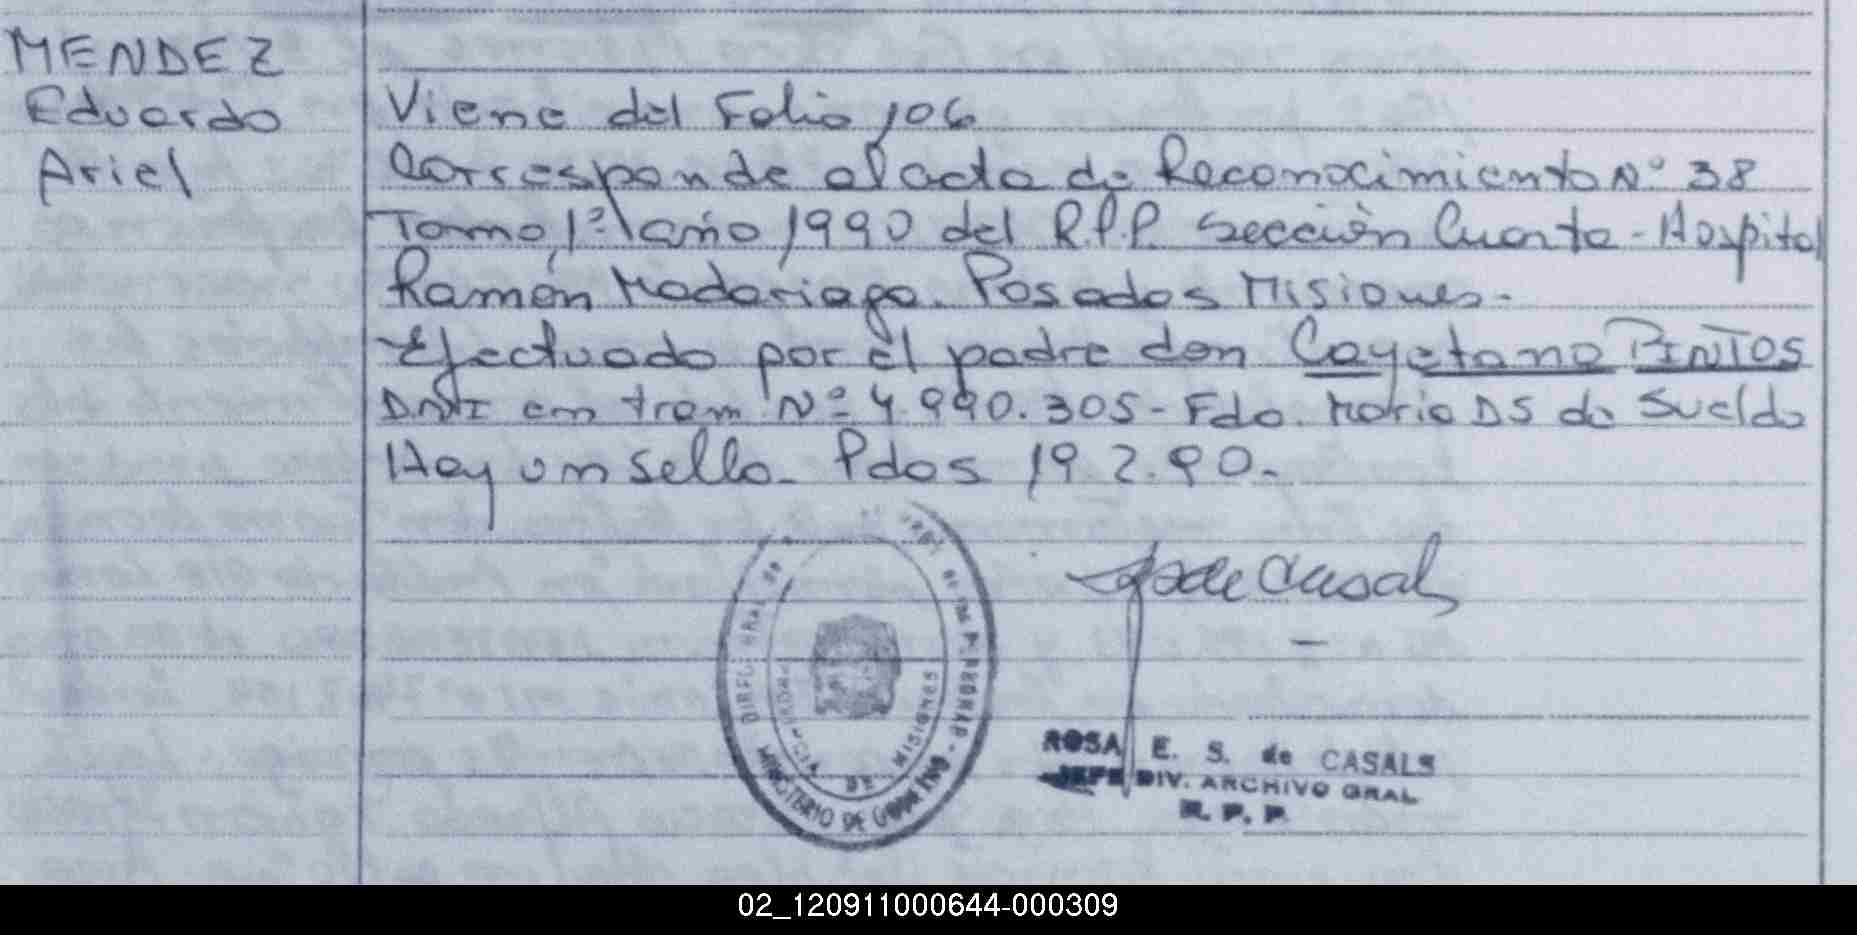 MENDEZ
Eduardo
Ariel
Viene del Folio 106
Corresponde al acta de Reconocimiento Nº 38
Tomo 1º año 1990 del R.P.P. Sección Cuarta - Hospital
Ramón Madariaga. Posadas Misiones.
Efectuado por el padre don Cayetano PINTOS
DNI en tram Nº 4.990.305 - Fdo. Maria DS de Sueldo
Hay un sello. Pdas 19.2.90.-
de Casals
MINISTERIO DE GOBIERNO
PROVINCIA DE MISIONES
DE LAS PERSONAS
ROSA E. S. de CASALS
JEFE DIV. ARCHIVO GRAL
R. P. P.
02_120911000644-000309